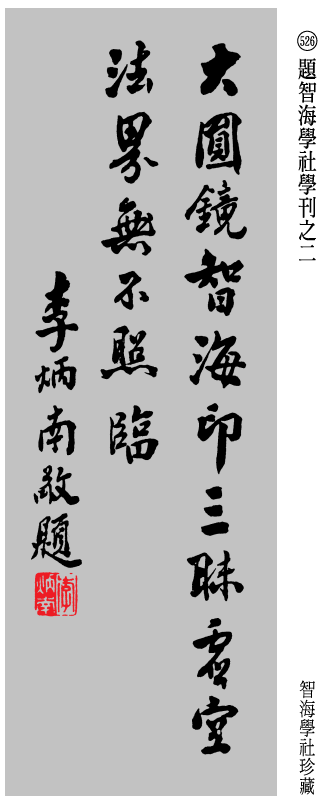 526 題智海學社學刊之二
大圓鏡智海印三昧虛空
法界無不照臨
李炳南敬題
李炳南
智海學社珍藏